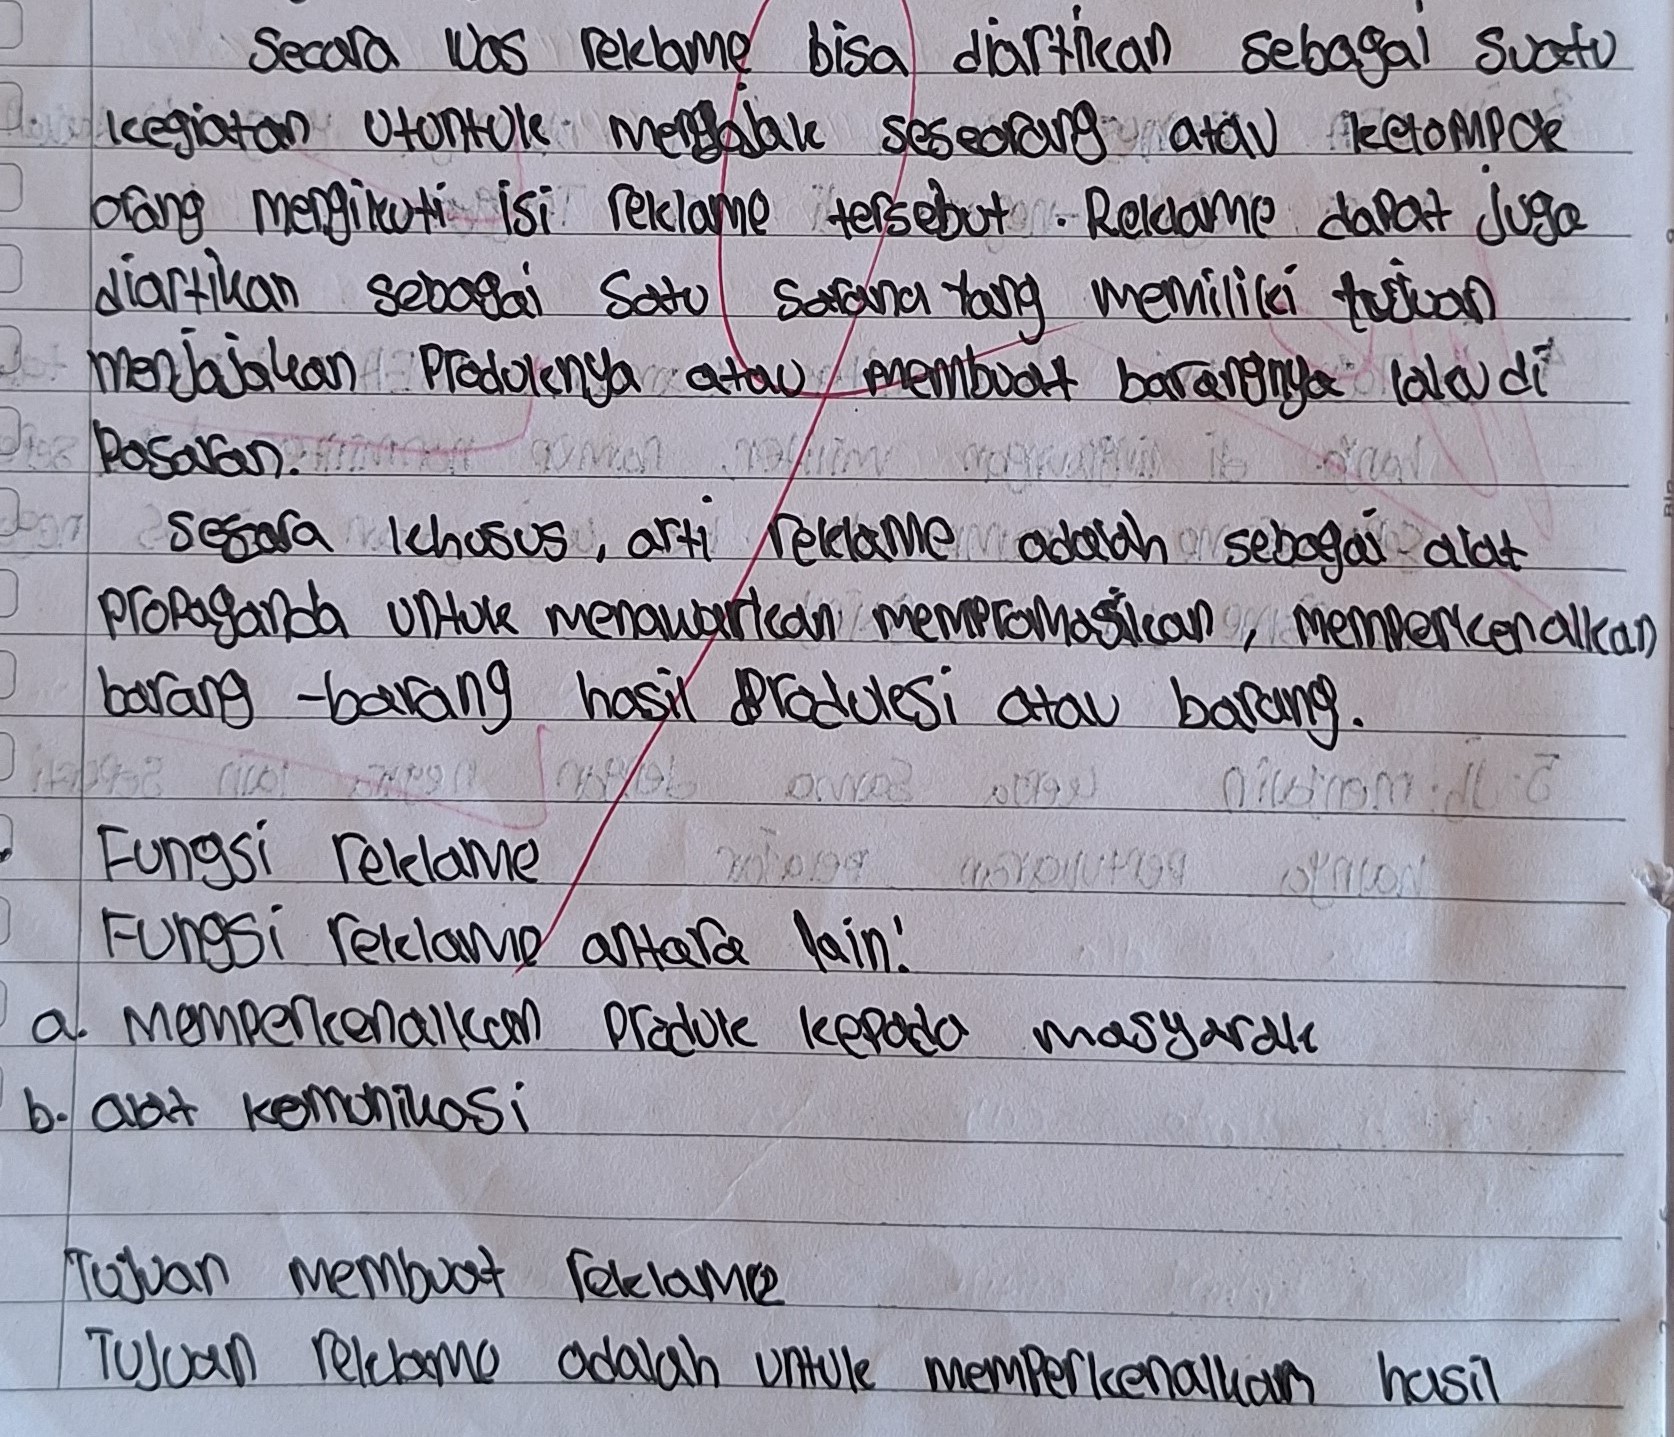 Secara luas reklame bisa diartikan sebagai suatu
kegiatan utontuk mengajak seseorang atau kelompok
orang mengikuti isi reklame tersebut. Reklame dapat juga
diartikan sebagai satu sarana yang memiliki tujuan
menjajakan produknya atau membuat barangnya laku di
Pasaran.
secara khusus, arti reklame adalah sebagai alat
propaganda untuk menawarkan mempromosikan, memperkenalkan
barang -barang hasil produksi atau barang.
Fungsi reklame
Fungsi reklame antara lain:
a. Memperkenalkan produk kepada masyarak
b. alat komunikasi
Tujuan membuat reklame
Tujuan reklame adalah untuk memperkenalkan hasil